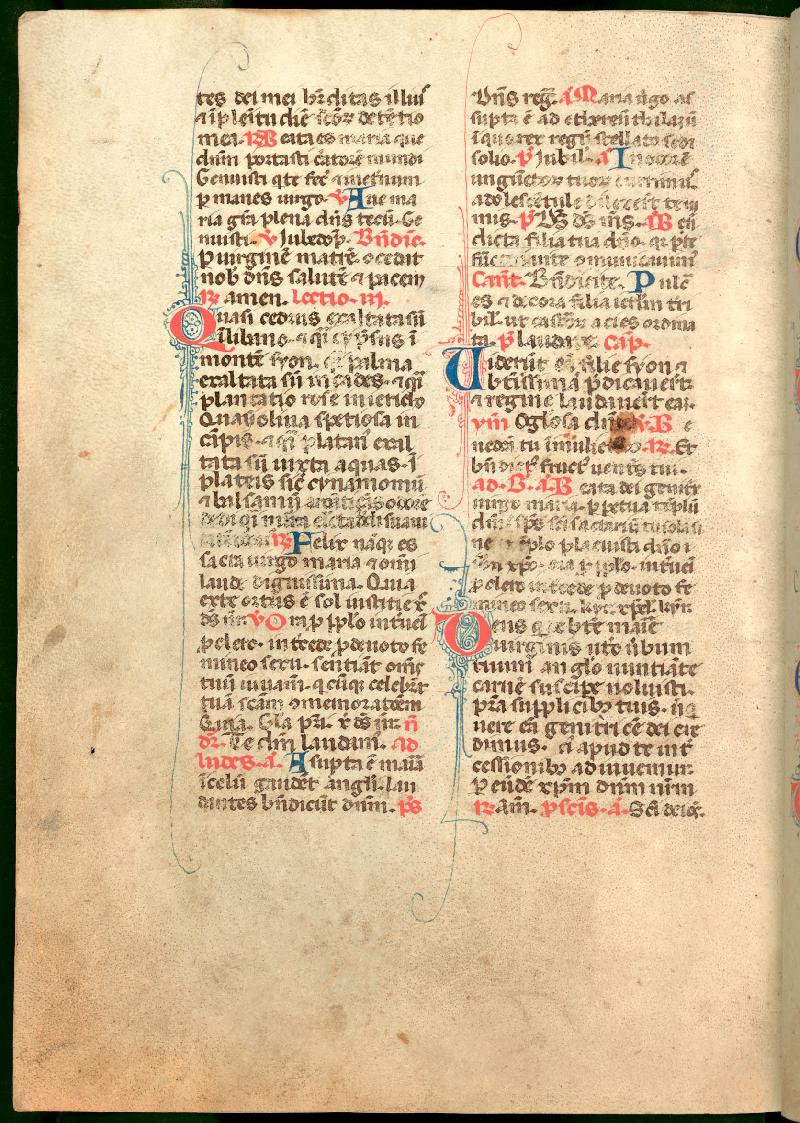 tes dei mei hẽditas illiuſ
⁊ i plenitudiẽ sc̃oꝝ detẽtio
mea. R̃ Beata es maria que
dñm portasti c̃atorẽ mundi
Genuisti q̇ te fec̃ ⁊ ieternum
ꝑmanes uirgo. v̇ Aue ma
ria gr̃a plena dñs tecũ. Ge
nuisti. v̇ Jube dõp. Bñdic̃.
P uirginẽ matrẽ ꝯcedat
nob̃ dñs salutẽ ⁊ pacem
R̃ amen. Lectio. iii.
Quasi cedrus exaltata sũ
i libano. ⁊ q̃i cypͥsus ĩ
montẽ syon. q̃i palma
exaltata sũ in cades. ⁊ q̃i
plantatio rose in iericho
Quasi oliua spetiosa in
cãpis. ⁊ q̃i platan̾ exal
tata sũ iuxta aquas. ĩ
plateis sic̃ cynamomũ
⁊ balsamũ aromatiçãs odorẽ
dedi q̃i mirra electa dedi suaui
R̃ Felix nãq; es
sacra uirgo maria ⁊ om̃i
laude dignissima. Quia
ex te ortus ẽ sol iustitie x̃
ds̃ nr̃. v̇ Ora ꝑ pplo inter̾ueĩ
ꝓ clero. intercede ꝓ deuoto fe
mineo sexu. sentiãt om̃s
tuũ iuuam̃. q cũq; celebrãt
tuã scãm ꝯmemoratõem
Quia. Gl̃a pr̃i. x̃ ds̃ nr̃. ñ
dr̃. Te dm̃ laudam̾. ad
laudes. a᷑. Assupta ẽ maĩa
ĩ celũ gaudẽt angl̃i. lau
dantes bñdicũt dñm. p̃s
Dñs reg̃. a᷑ Maria ũgo as
supta ẽ ad ethereũ thalamũ
ĩ quo rex regũ stellato sedꝫ
solio. p̃ Jubil̃. a᷑ In odorẽ
unguẽtoꝝ tuoꝝ currimus
adolescẽtule dilexerũt te ni
mis. p̃ Ds̃ ds̃ ms̃. a᷑ Ben
dicta filia tua dño. q̃ ꝑ te
fructũ uite ꝯmunicauim̾
Cant̃. Bñdicite. Pulcr̃
es ⁊ decora filia ierl̃m tri
bil̃. ut castroꝝ acies ordina
ta. p̃ laudate. Cap̃.
Uiderũt eã filie syon ⁊
bt̃issimã p̃dicauerũt
⁊ regine laudauer̃t eaꝫ.
ym̃ O glosa dñã v̇ Be
nedca tu ĩ mulieribꝫ. R̃. Et
bñdict̾ fruct̾ uentris tui.
ad. B̃. a᷑ Beata dei genitrix
uirgo maria. ꝑpetua tẽplũ
dñi. sp̃s sc̃i sacrariũ tu sola si
ne exẽplo placuisti dño i
ħu xp̃o. ora ꝑ pplo. interueĩ
ꝓ clero intercede ꝓ deuoto fe
mineo sexu. kyr̃. xp̃el̃. kyr̃
Deus q̇ de bt̃e maĩe
uirginis utero ũbum
tuum anglo nuntiãte
carnẽ suscipe uoluisti.
pr̃a supplicibꝫ tuis. ut q̇
uere eã genitricẽ dei cre
dimus. ei apud te int̃
cessionibꝫ adiuuemur.
P eũdẽ xp̃m dñm nr̃m
R̃ am̃. p̃ scĩs. a᷑. Sc̃i dei oẽs